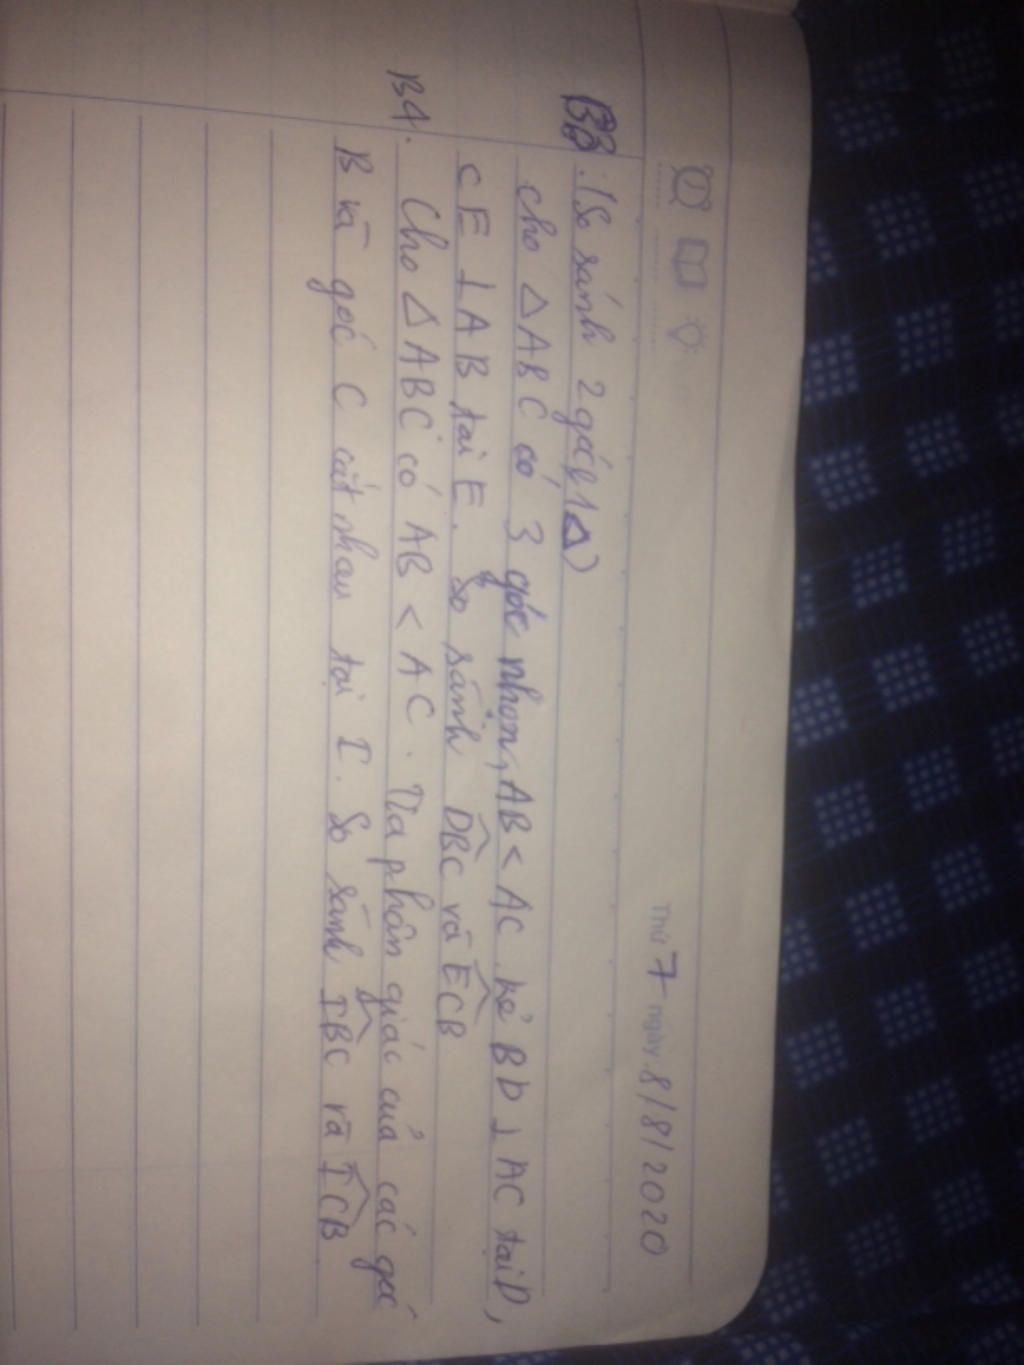 Thứ 7 ngày 8/8/2020
B3. (So sánh 2 góc/1Δ)
cho Δ ABC có 3 góc nhọn, AB < AC. kẻ BD ⊥ AC tại D,
CE ⊥ AB tại E. So sánh DBC và ECB
B4. Cho Δ ABC có AB < AC. Tia phân giác của các góc
B và góc C cắt nhau tại I. So sánh IBC và ICB